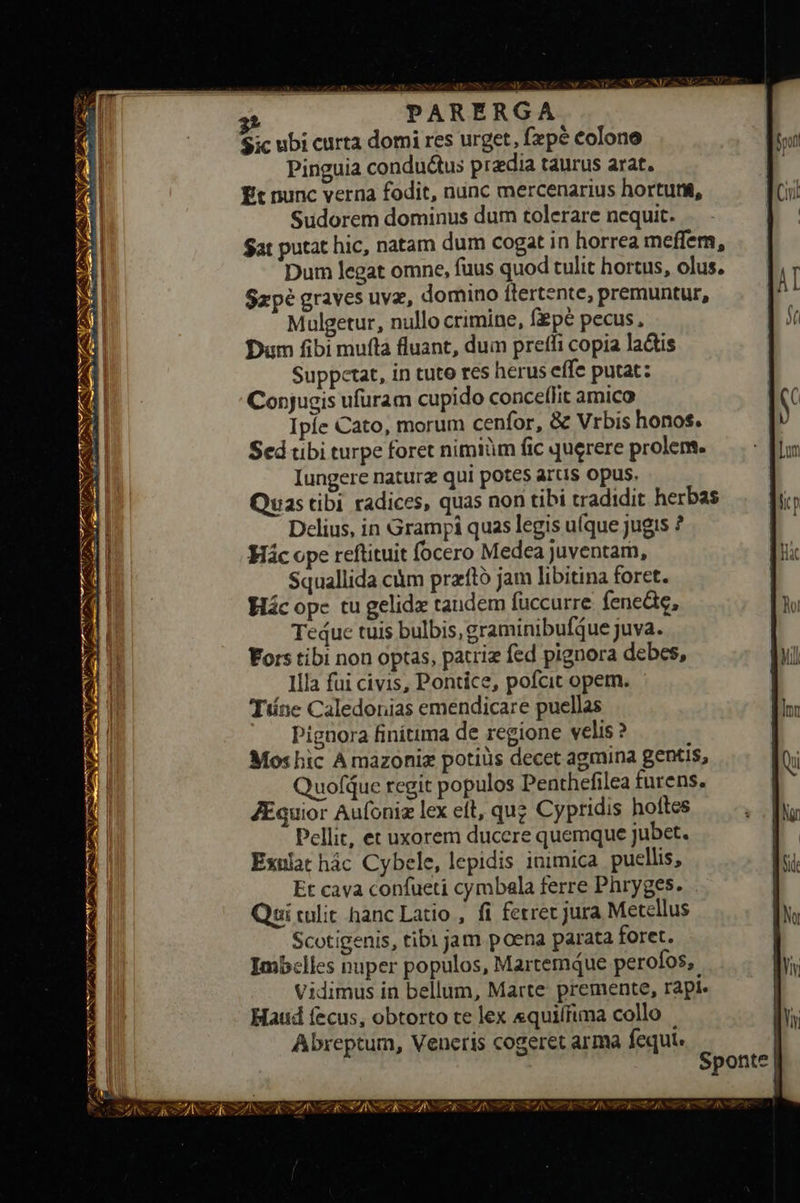 32 PARERGA
Sic ubi curta domi res urget, ſæpè colone
Pinguia conductus prædia taurus arat.
Et nunc verna fodit, nunc mercenarius hortum,
Sudorem dominus dum tolerare nequit.
Sat putat hic, natam dum cogat in horrea meſſem,
Dum legat omne, ſuus quod tulit hortus, olus.
Sæpè graves uvæ, domino ſtertente, premuntur,
Mulgetur, nullo crimine, ſæpè pecus,
Dum ſibi muſta fluant, dum preſſi copia lactis
Suppetat, in tuto res herus eſſe putat:
Conjugis uſuram cupido conceſſit amico
Ipſe Cato, morum cenſor, & Vrbis honos.
Sed tibi turpe foret nimiùm ſic quęrere prolem.
Iungere naturæ qui potes artis opus.
Quas tibi radices, quas non tibi tradidit herbas
Delius, in Grampi quas legis uſque jugis ?
Hác ope reſtituit ſocero Medea juventam,
Squallida cùm præſtò jam libitina foret.
Hác ope tu gelidæ tandem ſuccurre ſenectę,
Teq́ue tuis bulbis, graminibuſq́ue juva.
Fors tibi non optas, patriæ ſed pignora debes,
Illa ſui civis, Pontice, poſcit opem.
Túne Caledonias emendicare puellas
Pignora finitima de regione velis ?
Mos hic Amazoniæ potiùs decet agmina gentis,
Quoſq́ue regit populos Penthefilea furens.
Æquior Auſoniæ lex eſt, quę Cypridis hoſtes
Pellit, et uxorem ducere quemque jubet.
Exulat hác Cybele, lepidis inimica puellis,
Et cava conſueti cymbala ferre Phryges.
Qui tulit hanc Latio, ſi ferret jura Metellus
Scotigenis, tibi jam pœna parata foret.
Imbelles nuper populos, Martemq́ue peroſos,
Vidimus in bellum, Marte premente, rapi.
Haud ſecus, obtorto te lex æquiſſima collo
Abreptum, Veneris cogeret arma ſequi.
Sponte